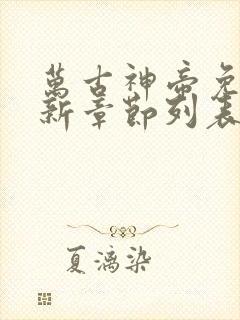 萬古神帝免
新章節列表
夏漓染